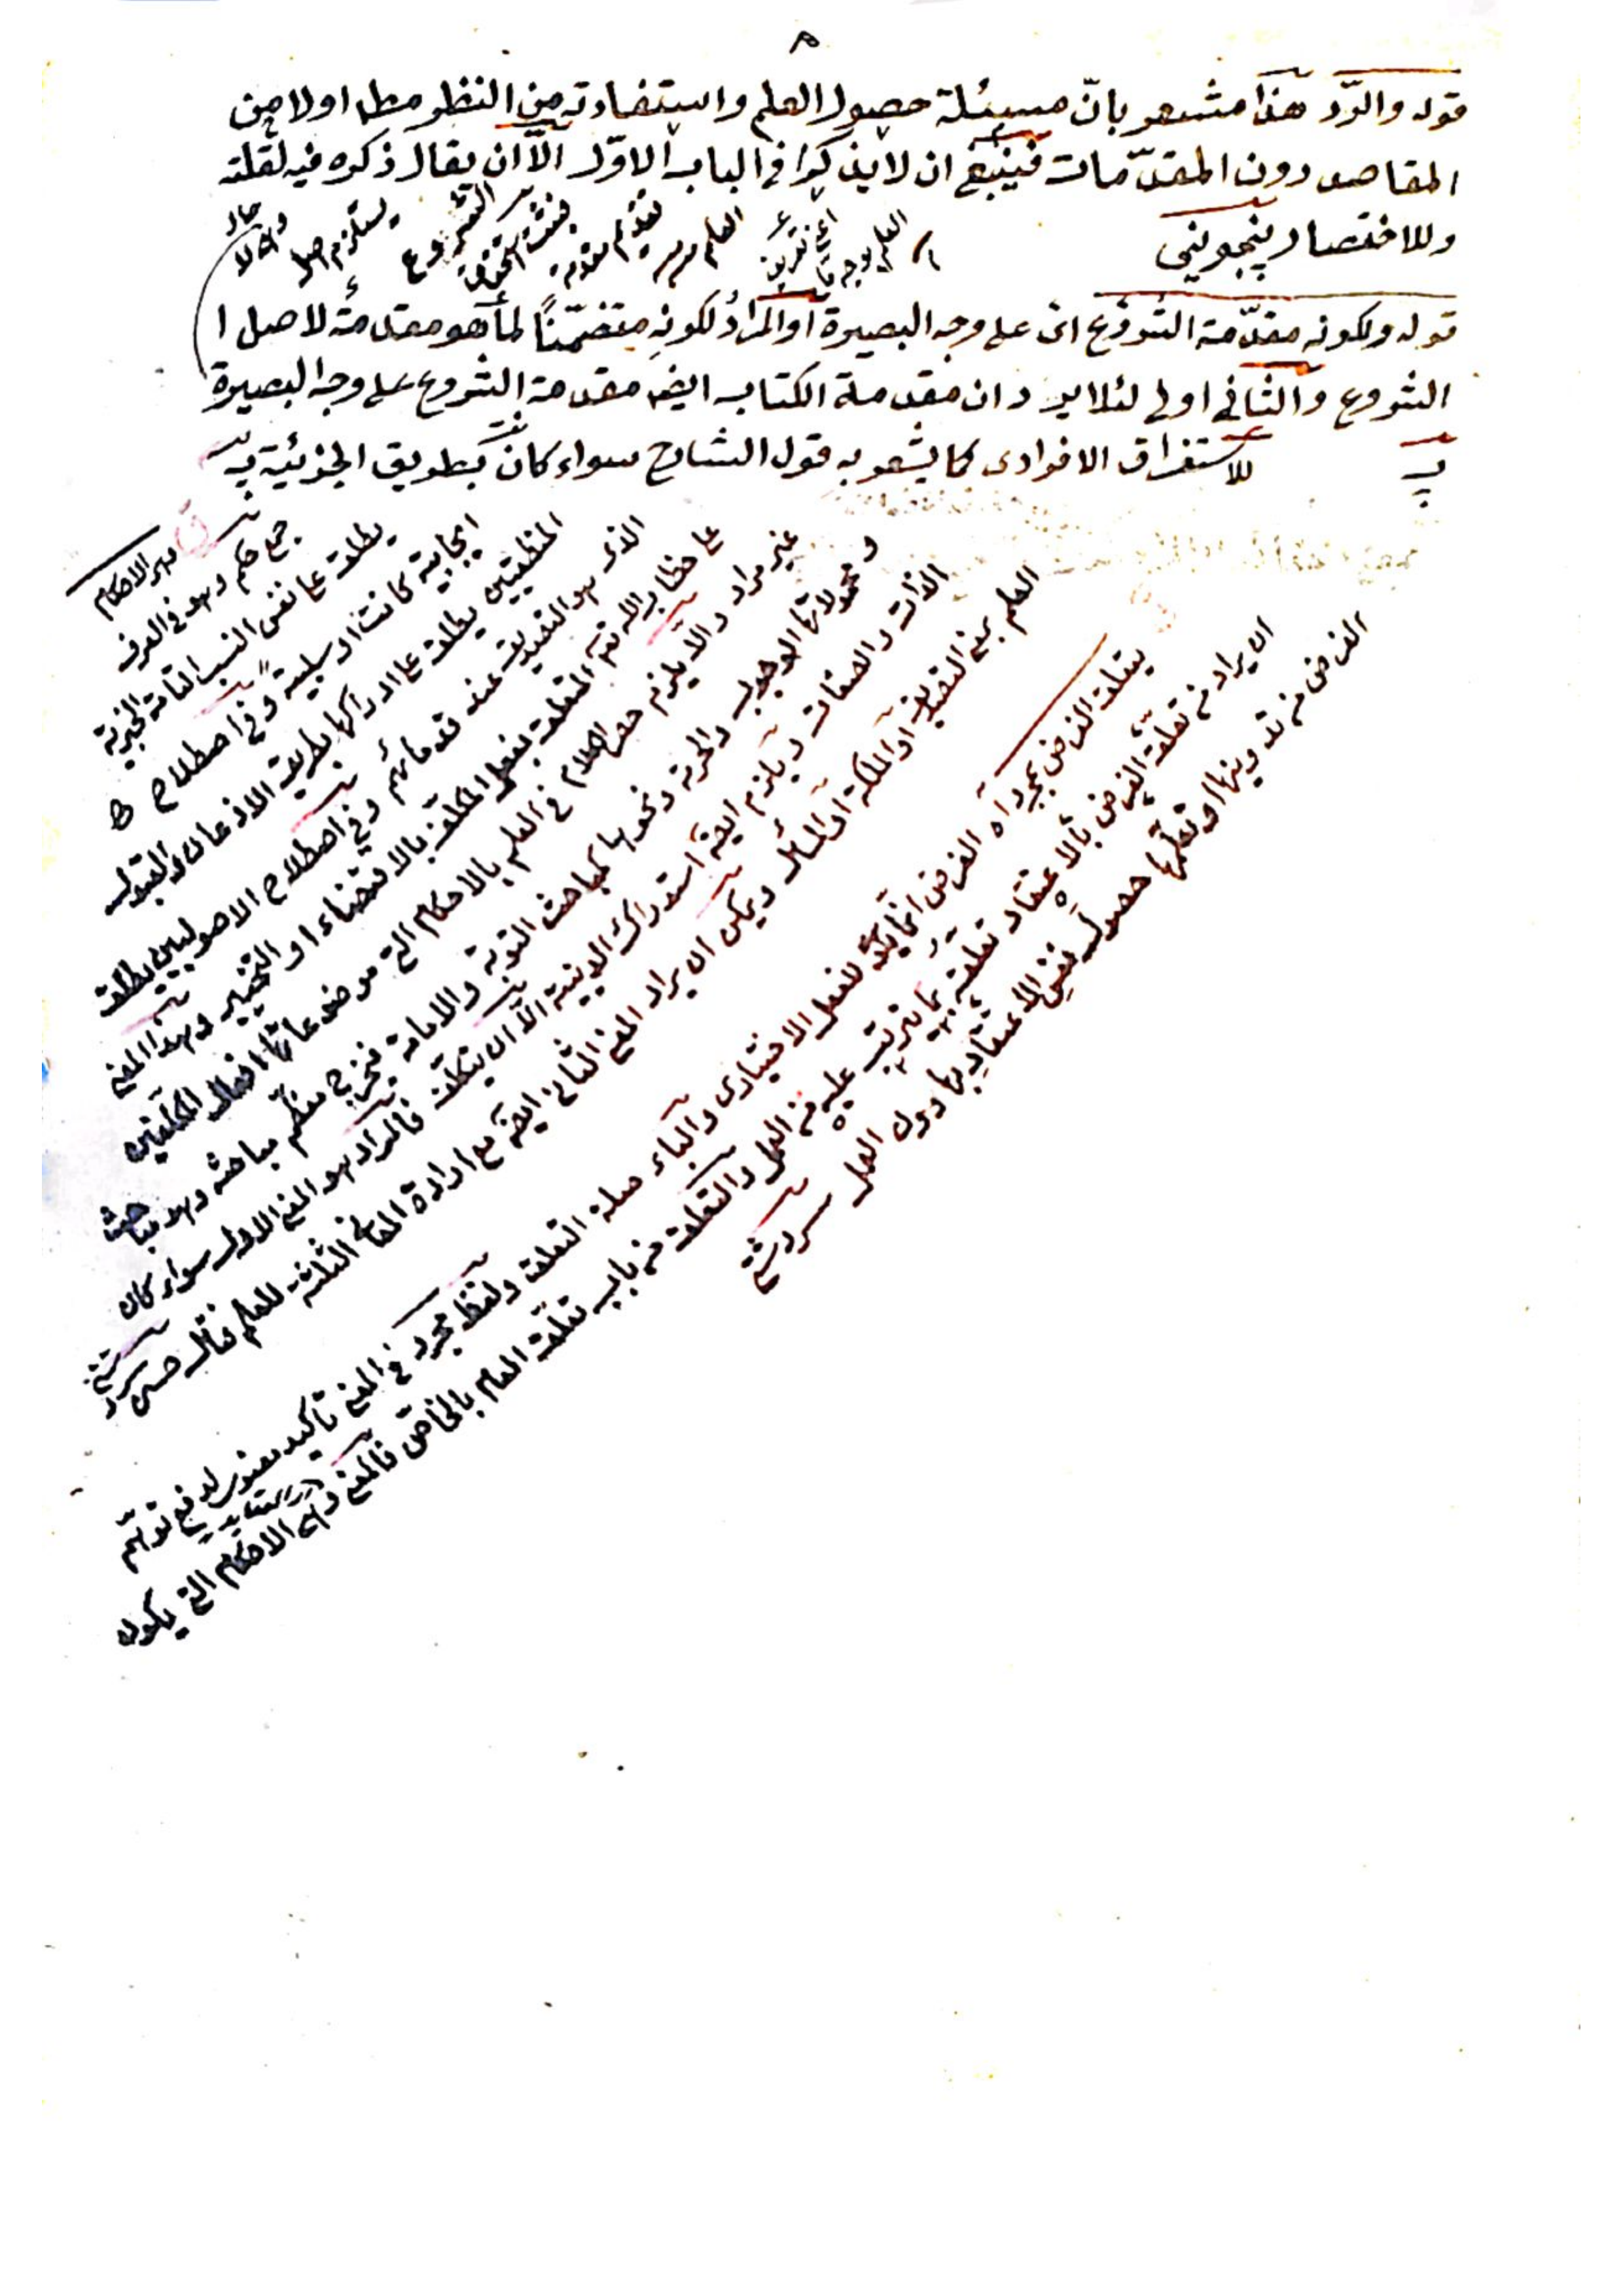 ٨
قوله والرّد هذا مشعر بانّ مسئلة حصول العلم واستفادته من النظر مطلقا اولا من
المقاصد دون المقدّمات فينبغى ان لا يذكرا فى الباب الاوّل الاّ ان يقال ذكره فيه لقلته
وللاختصار پنجوينى
قوله ولكونه مقدّمة الشروع اى على وجه البصيرة او المراد لكونه متضمّناً لما هو مقدمة لاصل ا
الشروع والثانى اولى لئلا يرد ان مقدمة الكتاب ايض مقدمة الشروع على وجه البصيرة
للاستغراق الافرادى كما يشعر به قول الشارح سواء كان بطريق الجزئية
الاحكام
جمع حكم وهو فى العرف
يطلق على نفس النسب التامة الخبرية
ايجابية كانت او سلبية وفى اصطلاح
المنطقيين يطلق على ادراكها بطريق الاذعان والقبول
الذى هو التصديق عند قدمائهم وفى اصطلاح الاصوليين يطلق
على خطاب الله تعم المتعلق بفعل المكلف بالاقتضاء او التخيير وهذا المعنى
غير مراد والاّ يلزم حصر الكلام فى العلم بالاحكام التى موضوعاتها افعال المكلفين
ومحمولاتها الوجوب والحرمة ونحوها كمباحث التوبة والامامة فيخرج معظم مباحثه وهو مباحث
الذات والصفات ويلزم ايضه استدراك الدينية الاّ ان يتكلف فالمراد هو المعنى الاول سواء كان
العلم بمعنى التصديق او الملكة او المسائل ويمكن ان يراد المعنى الثانى ايضه مع ارادة المعانى الثلثة للعلم فتأمل حسن
يتعلق الغرض بمجرد اه الغرض انما يكون لفعل الاختيارى والباء صلة التعلق ولفظ مجرد فى المعنى تأكيد معنوى لدفع توهّم
ان يراد من تعلق الغرض بالاعتقاد تعلقه بما يترتب عليه من العمل والتعلق من باب تعلق العام بالخاص فالمعنى والاحكام التى يكون
الغرض من تدوينها او تعلّمها حصول نفس الاعتقاد بها دون العمل سردشتى